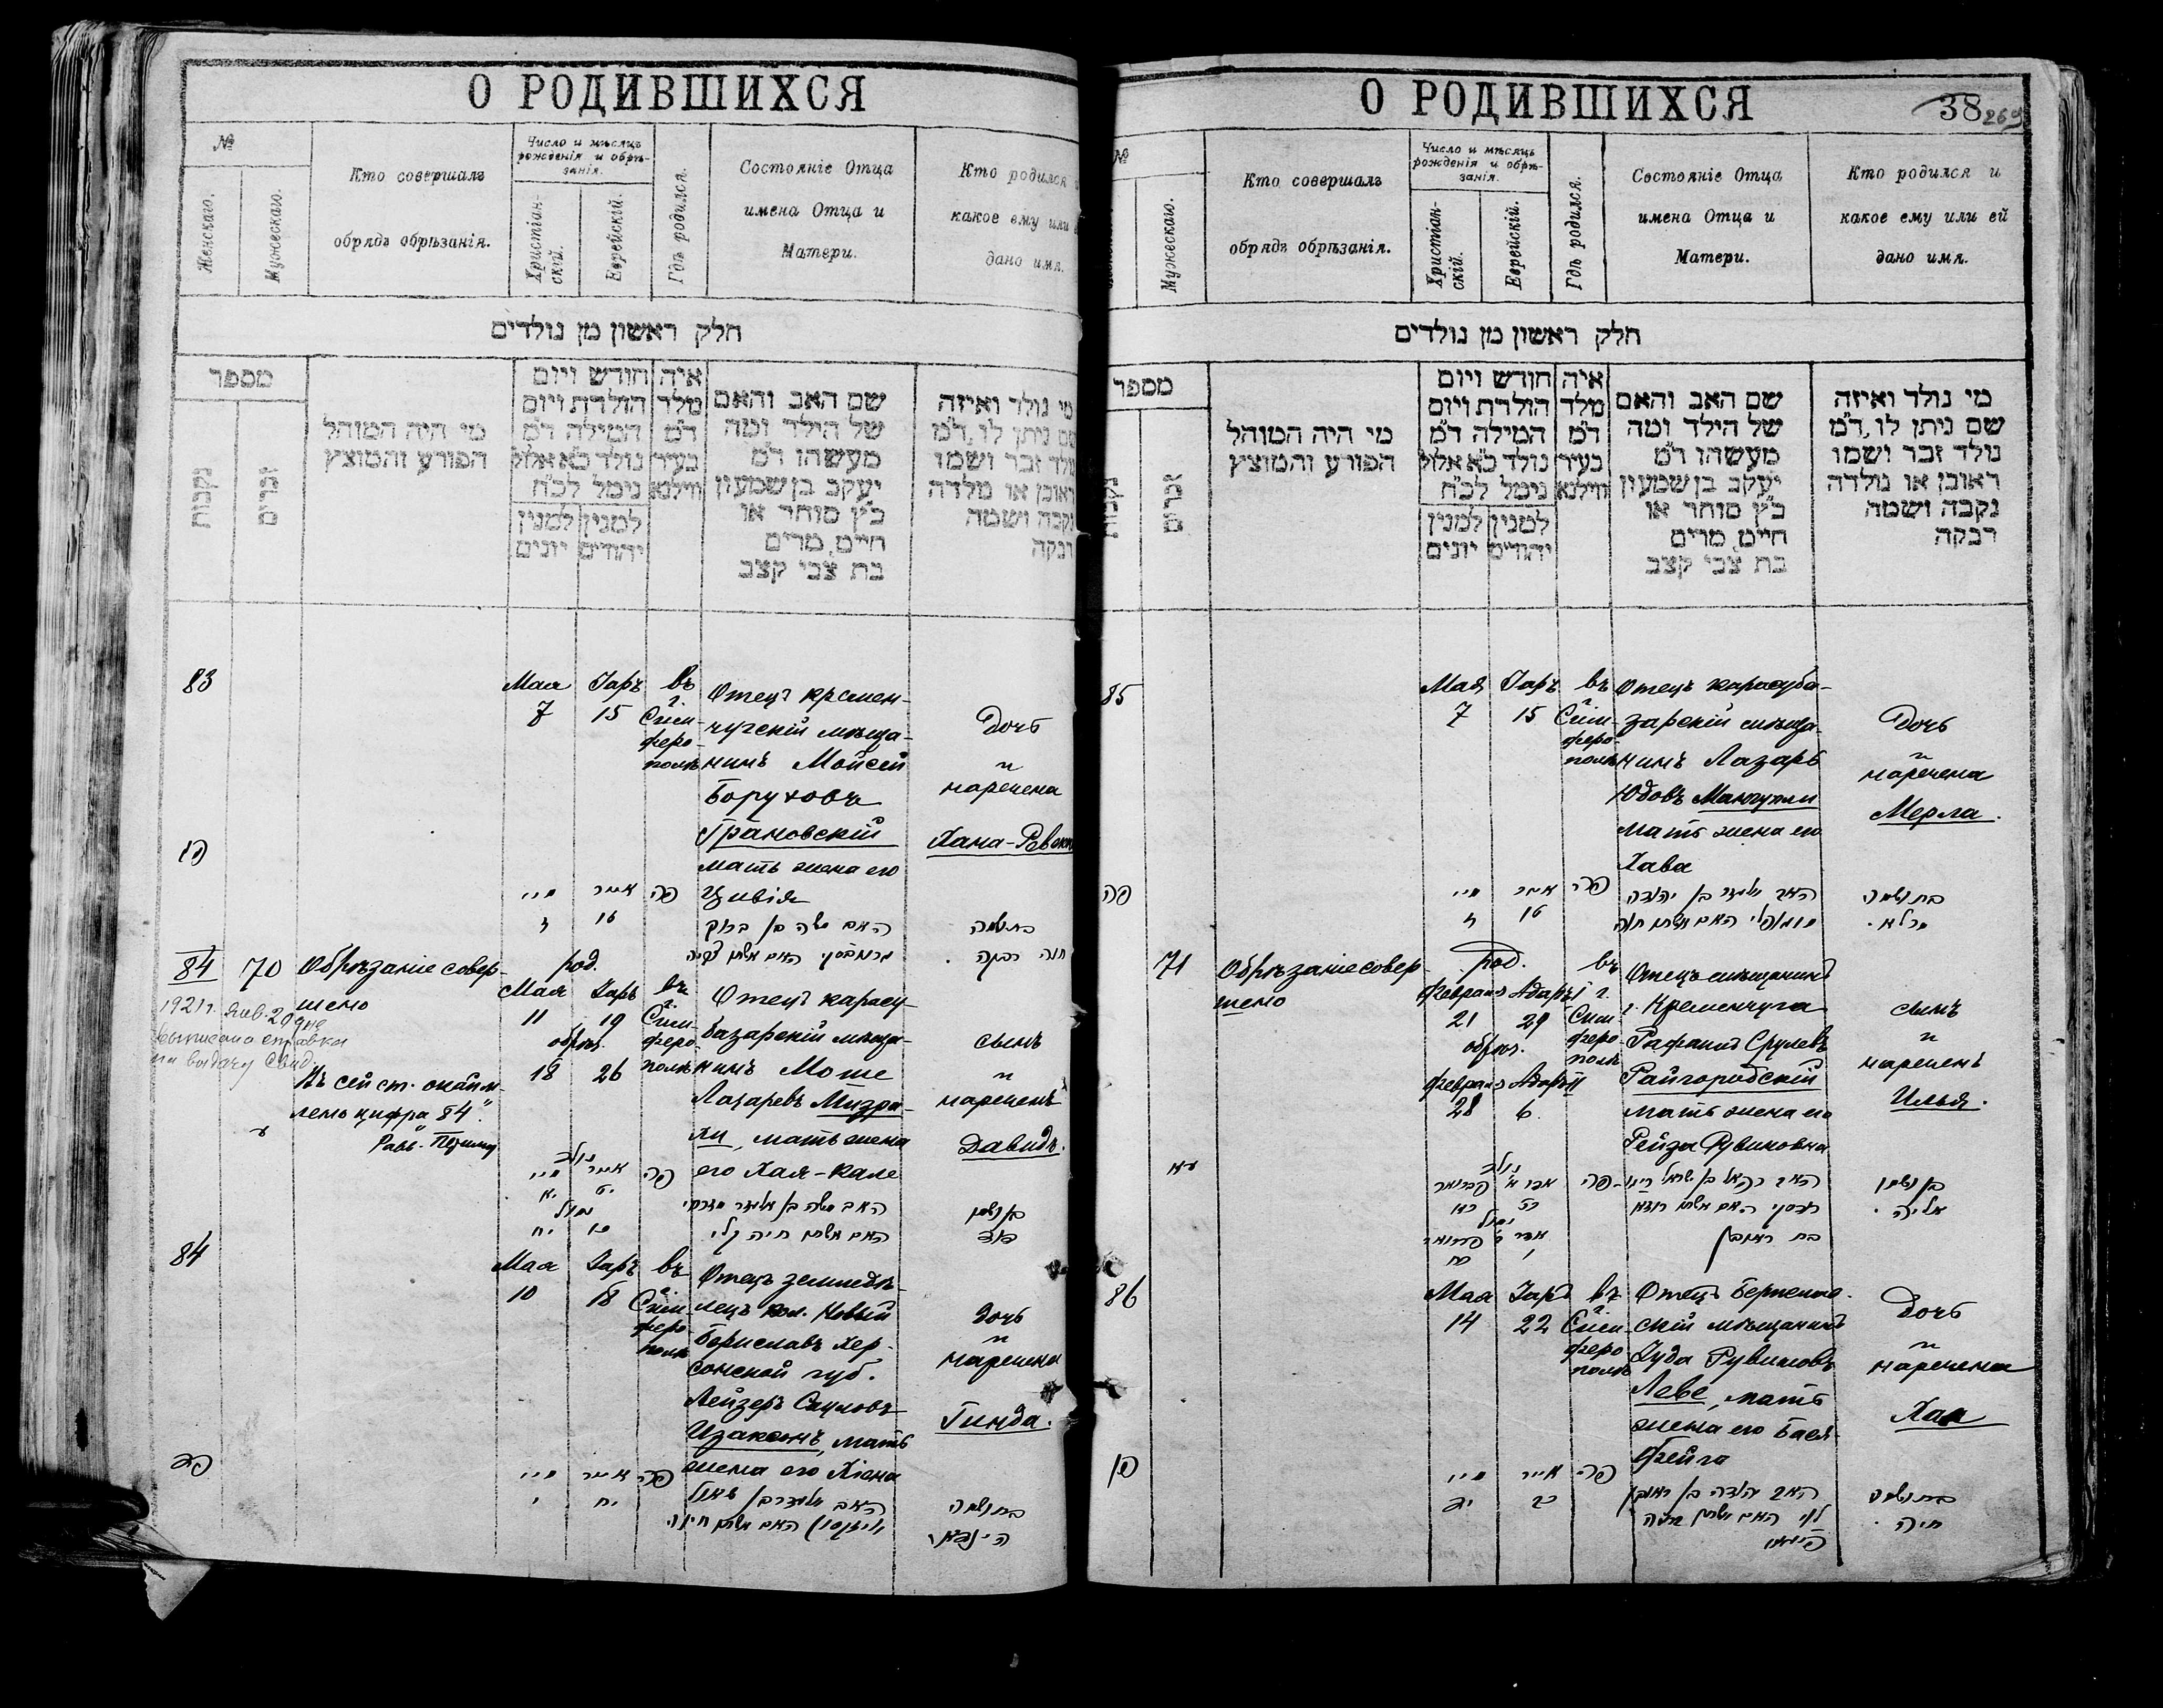 О РОДИВШИХСЯ
№
Женскаго.
Мужескаго.
Кто совершалъ
обрядъ обрѣзанія.
Число и мѣсяцъ
рожденія и обрѣ-
занія.
Христіан-
скій.
Еврейскій.
Гдѣ родился.
Состояніе Отца
имена Отца и
Матери.
Кто родился
какое ему или
дано имя.
חלק ראשון מן נולדים
מספר
נקבות
זכרים
מי היה המוהל
הפורע והמוצץ
חודש ויום
הולדת ויום
המילה ד"מ
נולד כ"א אלול
נימל לכ"ח
למנין למנין
יהודים יונים
איה
מלד
ד"מ
בעיר
ווילנא
שם האב והאם
של הילד ומה
מעשהו ד"מ
יעקב בן שמעון
כ"ץ סוחר או
חייט, מרים
בת צבי קצב
מי נולד ואיזה
שם ניתן לו, ד"מ
נולד זכר ושמו
ראובן או נולדה
נקבה ושמה
רבקה
83
Мая
7
Іаръ
15
въ
г.
Сим-
феро-
полѣ
Отецъ кремен-
чугскій мѣща-
нинъ Мойсей
Боруховъ
Грановскій
мать жена его
Цивія
Дочь
и
наречена
Хана-
מיי
אייר
פה
האב משה בן ברוך
84
70
Обрѣзаніе совер-
шено
1921 г. Янв. 29 дня
выписана справка
на выдачу свид.
Въ сей ст.
цифра "84".
Рав.
род.
Мая
11
Іаръ
19
обрѣз.
18
26
въ
г.
Сим-
феро-
полѣ
Отецъ карасу-
базарскій мѣща-
нинъ Моше
Лазаревъ Мизра-
хи, мать жена
его Хая-Кале
сынъ
и
нареченъ
Давидъ.
נולד
מיי
אייר
פה
נימול
בן ושמו
דוד
84
Мая
10
Іаръ
18
въ
г.
Сим-
феро-
полѣ
Отецъ земледѣ-
лецъ кол. Новый
Бериславъ Хер-
сонской губ.
Лейзеръ Сауловъ
Изаксонъ, мать
жена его Хіена
Дочь
и
наречена
Гинда.
פד
מיי
אייר
פה
О РОДИВШИХСЯ
38
269
№
Мужескаго.
Кто совершалъ
обрядъ обрѣзанія.
Число и мѣсяцъ
рожденія и обрѣ-
занія.
Христіан-
скій.
Еврейскій.
Гдѣ родился.
Состояніе Отца
имена Отца и
Матери.
Кто родился и
какое ему или ей
дано имя.
חלק ראשון מן נולדים
מספר
נקבות
זכרים
מי היה המוהל
הפורע והמוצץ
חודש ויום
הולדת ויום
המילה ד"מ
נולד כ"א אלול
נימל לכ"ח
למנין למנין
יהודים יונים
איה
מלד
ד"מ
בעיר
ווילנא
שם האב והאם
של הילד ומה
מעשהו ד"מ
יעקב בן שמעון
כ"ץ סוחר או
חייט, מרים
בת צבי קצב
מי נולד ואיזה
שם ניתן לו, ד"מ
נולד זכר ושמו
ראובן או נולדה
נקבה ושמה
רבקה
85
Мая
7
Іаръ
15
въ
г.
Сим-
феро-
полѣ
Отецъ карасуба-
зарскій мѣща-
нинъ Лазарь
Юдовъ
мать жена его
Хава
Дочь
и
наречена
Мерла.
פה
מיי
אייר
פה
71
Обрѣзаніе совер
шено
род.
Февраля
21
Адаръ I
29
обрѣз.
Февраля
28
Адаръ II
6.
въ
г.
Сим
феро
полѣ
Отецъ мѣщанинъ
г. Кременчуга
Рафаилъ Срулевъ
Райгородскій
мать жена его
Рейза Рувиновна
сынъ
и
нареченъ
Илья.
עא
נולד
פה
נימול
בת ראובן
בן ושמו
אליה.
86
Мая
14
Іаръ
22
въ
г.
Сим-
феро
полѣ
Отецъ
скій мѣщанинъ
Іуда Рувиновъ
Леве, мать
жена его Бася-
Фейга
Дочь
и
наречена
Хая
פו
מיי
אייר
פה
האב יהודה בן ראובן
חיה.